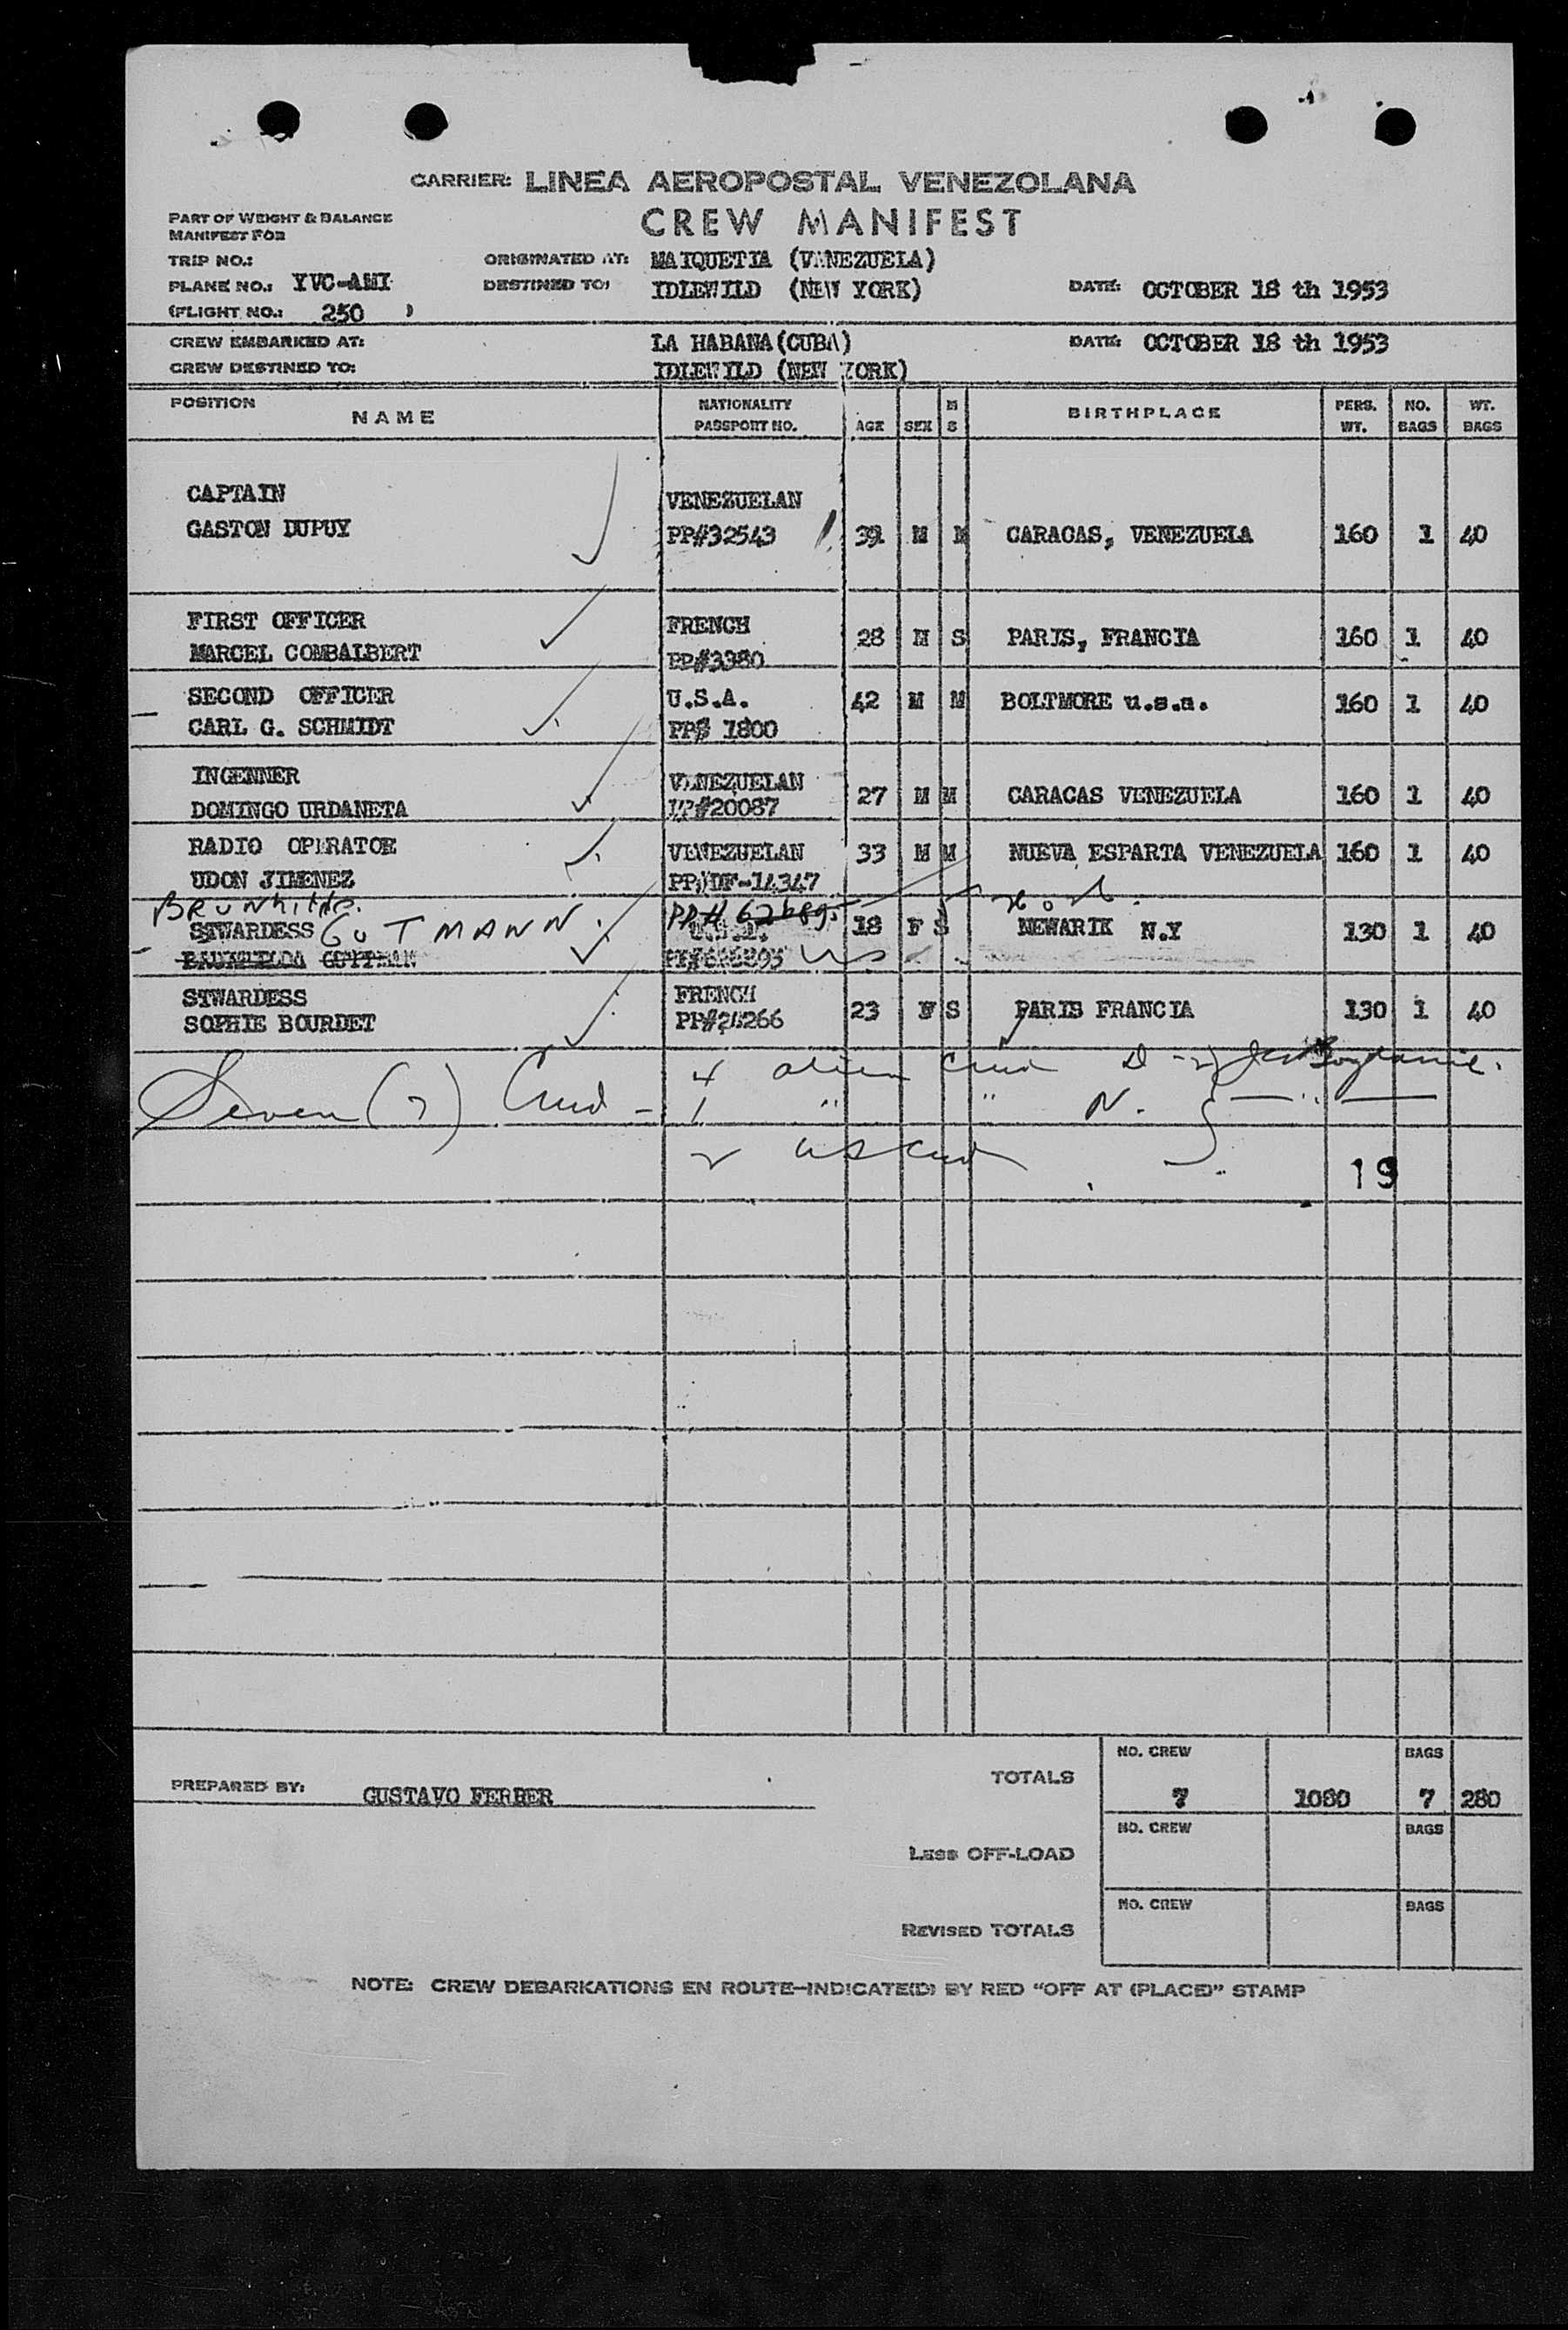 CARRIER: LINEA AEROPOSTAL VENEZOLANA
PART OF WEIGHT & BALANCE
MANIFEST FOR
CREW MANIFEST
TRIP NO.:
ORIGINATED AT: MAIQUETIA (VENEZUELA)
PLANE NO.: YVC-AMI
DESTINED TO: IDLEWILD (NEW YORK)
DATE: OCTOBER 18 th 1953
(FLIGHT NO.: 250 )
CREW EMBARKED AT: LA HABANA (CUBA) DATE: OCTOBER 18 th 1953
CREW DESTINED TO: IDLEWILD (NEW YORK)
POSITION NAME NATIONALITY PASSPORT NO. AGE SEX M S BIRTHPLACE PERS. WT. NO. BAGS WT. BAGS
CAPTAIN VENEZUELAN
GASTON DUPUY PP#32543 39 M M CARACAS, VENEZUELA 160 1 40
FIRST OFFICER FRENCH 28 M S PARIS, FRANCIA 160 1 40
MARCEL COMBALBERT PP#3380
SECOND OFFICER U.S.A. 42 M M BOLTMORE u.s.a. 160 1 40
CARL G. SCHMIDT PP# 1800
INGENNER VENEZUELAN 27 M M CARACAS VENEZUELA 160 1 40
DOMINGO URDANETA PP#20087
RADIO OPERATOR VENEZUELAN 33 M M NUEVA ESPARTA VENEZUELA 160 1 40
UDON JIMENEZ PP#DF-14347
BRUNhilde
STWARDESS GUTMANN PP# 18 F S NEWARIK N.Y 130 1 40
GUTTMAN US
STWARDESS FRENCH 23 F S PARIS FRANCIA 130 1 40
SOPHIE BOURDET
Seven (7) Crew - 4 alien Crew D-2
1 " " N.
2 US Crew
19
PREPARED BY: GUSTAVO FERRER
TOTALS NO. CREW 7 1080 BAGS 7 280
LESS OFF-LOAD NO. CREW BAGS
REVISED TOTALS NO. CREW BAGS
NOTE: CREW DEBARKATIONS EN ROUTE—INDICATE(D) BY RED "OFF AT (PLACE)" STAMP